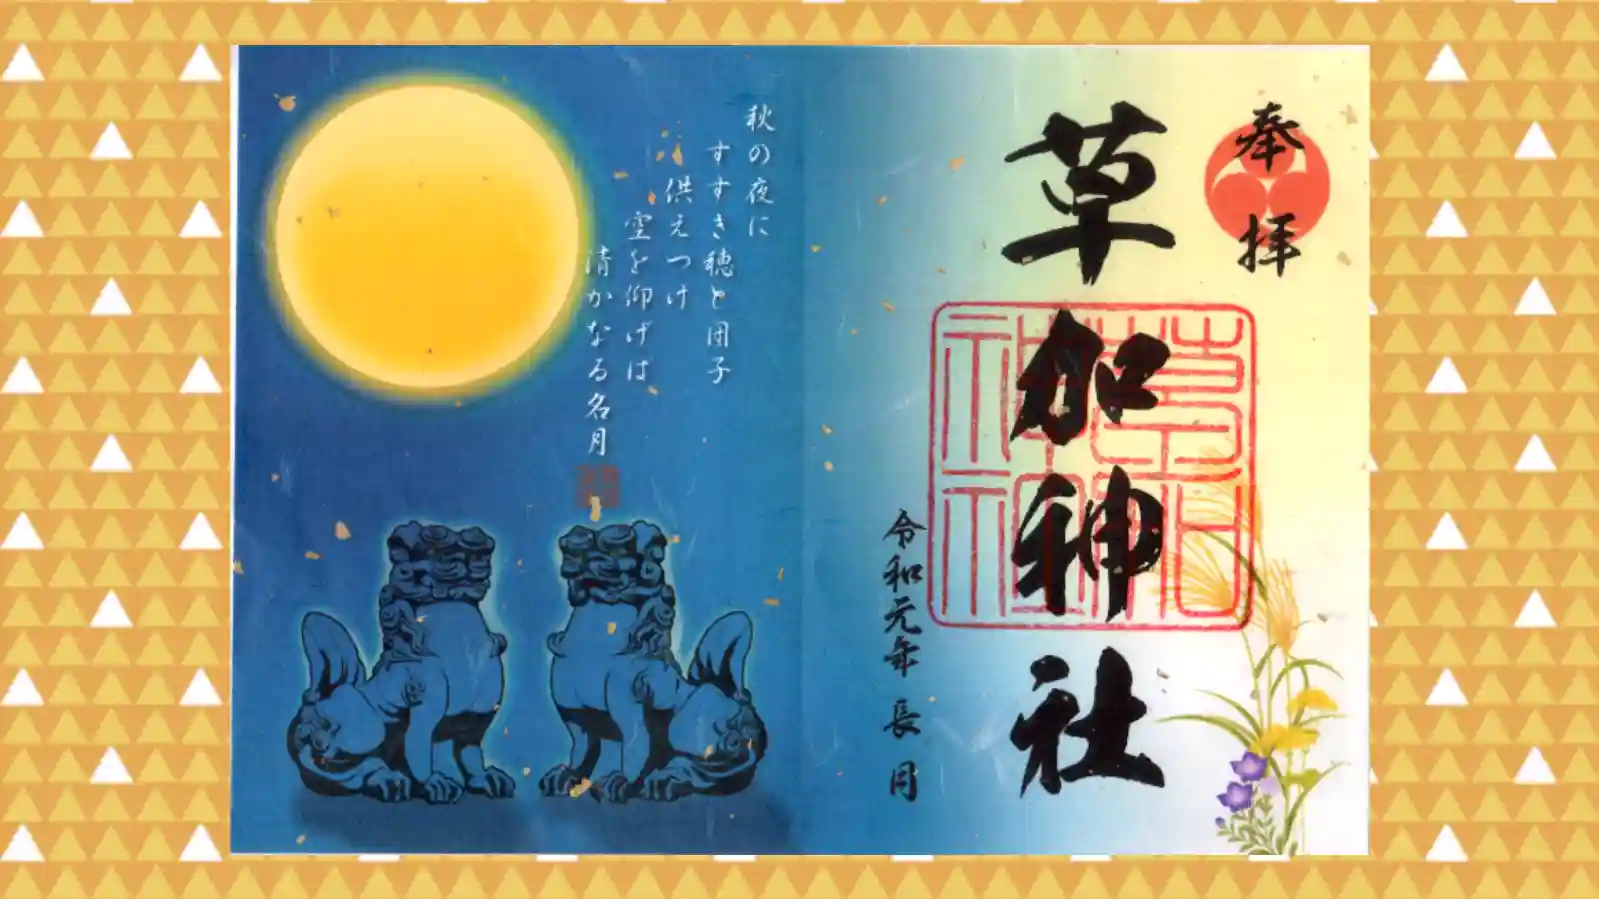 奉拝
草加神社
令和元年 長月
秋の夜に
すすき穂と団子
供えつけ
空を仰げば
清かなる名月